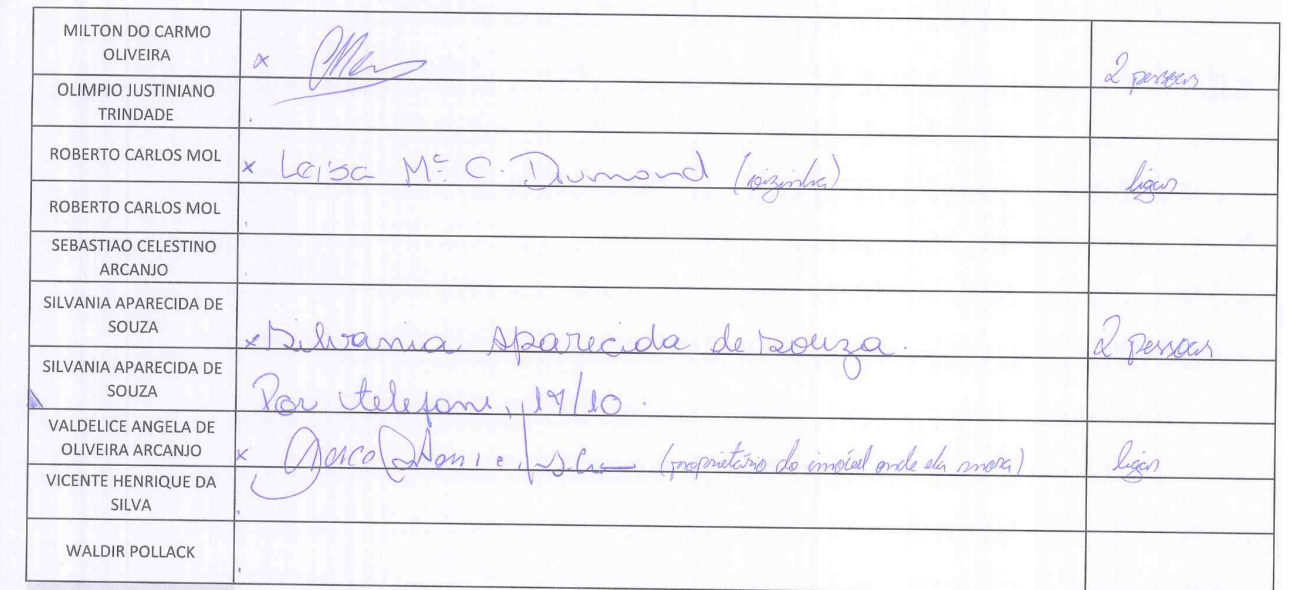 MILTON DO CARMO
OLIVEIRA
x
2 pessoas
OLIMPIO JUSTINIANO
TRINDADE
ROBERTO CARLOS MOL
x Laisa Mª C. Dumond (vizinha)
ligar
ROBERTO CARLOS MOL
SEBASTIAO CELESTINO
ARCANJO
SILVANIA APARECIDA DE
SOUZA
x Silvania Aparecida de Souza.
2 pessoas
SILVANIA APARECIDA DE
SOUZA
Por telefone, 17/10.
VALDELICE ANGELA DE
OLIVEIRA ARCANJO
x (proprietário do imóvel onde ela mora)
ligar
VICENTE HENRIQUE DA
SILVA
WALDIR POLLACK